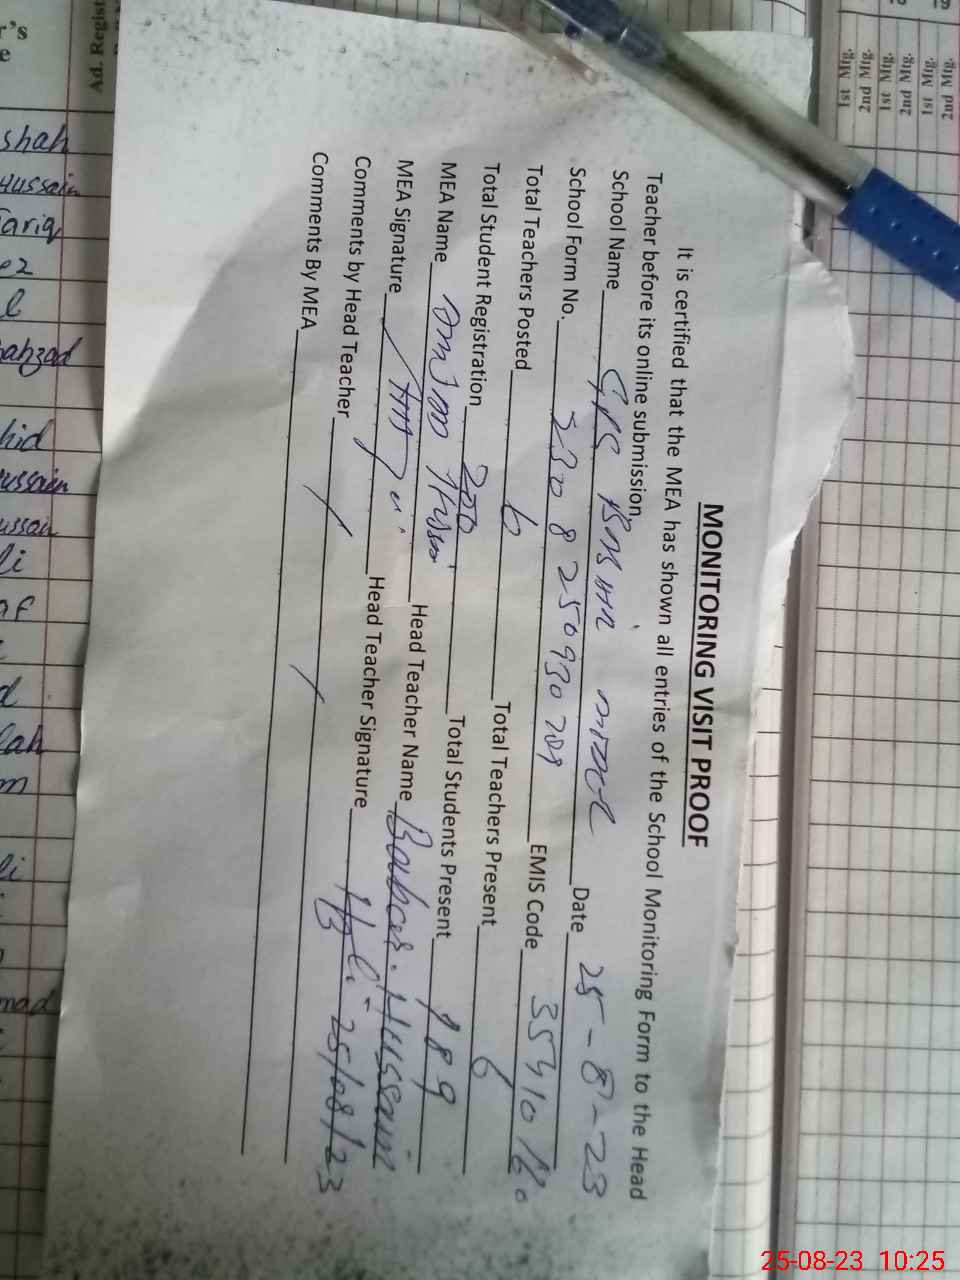 MONITORING VISIT PROOF
It is certified that the MEA has shown all entries of the School Monitoring Form to the Head
Teacher before its online submission.
School Name Date 25-8-23
School Form No. 2308250930789 EMIS Code
Total Teachers Posted 6 Total Teachers Present 6
Total Student Registration 200 Total Students Present 189
MEA Name Head Teacher Name Hussain
MEA Signature Head Teacher Signature 25/08/23
Comments by Head Teacher
Comments By MEA
shah
Hussain
Tariq
ez
l
ahzad
hid
ussain
ussain
li
af
d
lah
m
li
mad
r's
e
Ad. Regist
2nd Mtg.
1st Mtg.
2nd Mtg.
1st Mtg.
2nd Mtg.
1st Mtg.
25-08-23 10:25